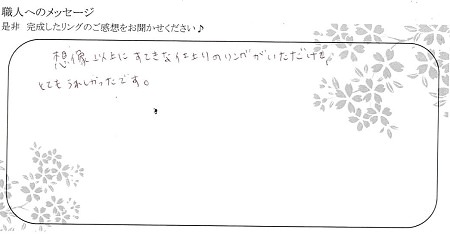 職人へのメッセージ
是非 完成したリングのご感想をお聞かせください♪
想像以上にすてきな仕上りのリングがいただけて、
とてもうれしかったです。